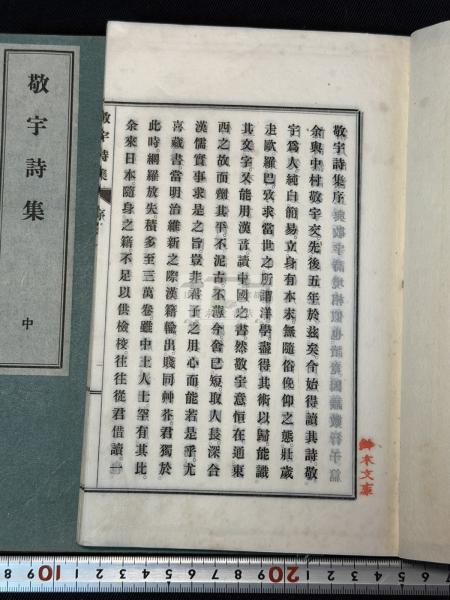 敬宇詩集
中
敬宇詩集序
余與中村敬宇交先後五年於兹矣今始得讀其詩敬
宇爲人純白簡易立身有本末無隨俗俛仰之態壯歲
走歐羅巴攷求當世之所謂洋學盡得其術以歸能識
其文字又能用漢音讀中國之書然敬宇意恒在通東
西之故而劑其平不泥古不薄今舍己短取人長深合
漢儒實事求是之旨豈非君子之用心而能若是乎尤
喜藏書當明治維新之際漢籍輸出賤同艸芥君獨於
此時網羅放失積多至三萬卷雖中土人士罕有其比
余來日本隨身之籍不足以供檢校往往從君借讀一
敬宇詩集
序
鈴木文庫
8 9 10 1 2 3 4 5 6 7 8 9 20 1 2 3 4 5 6 7 8 9